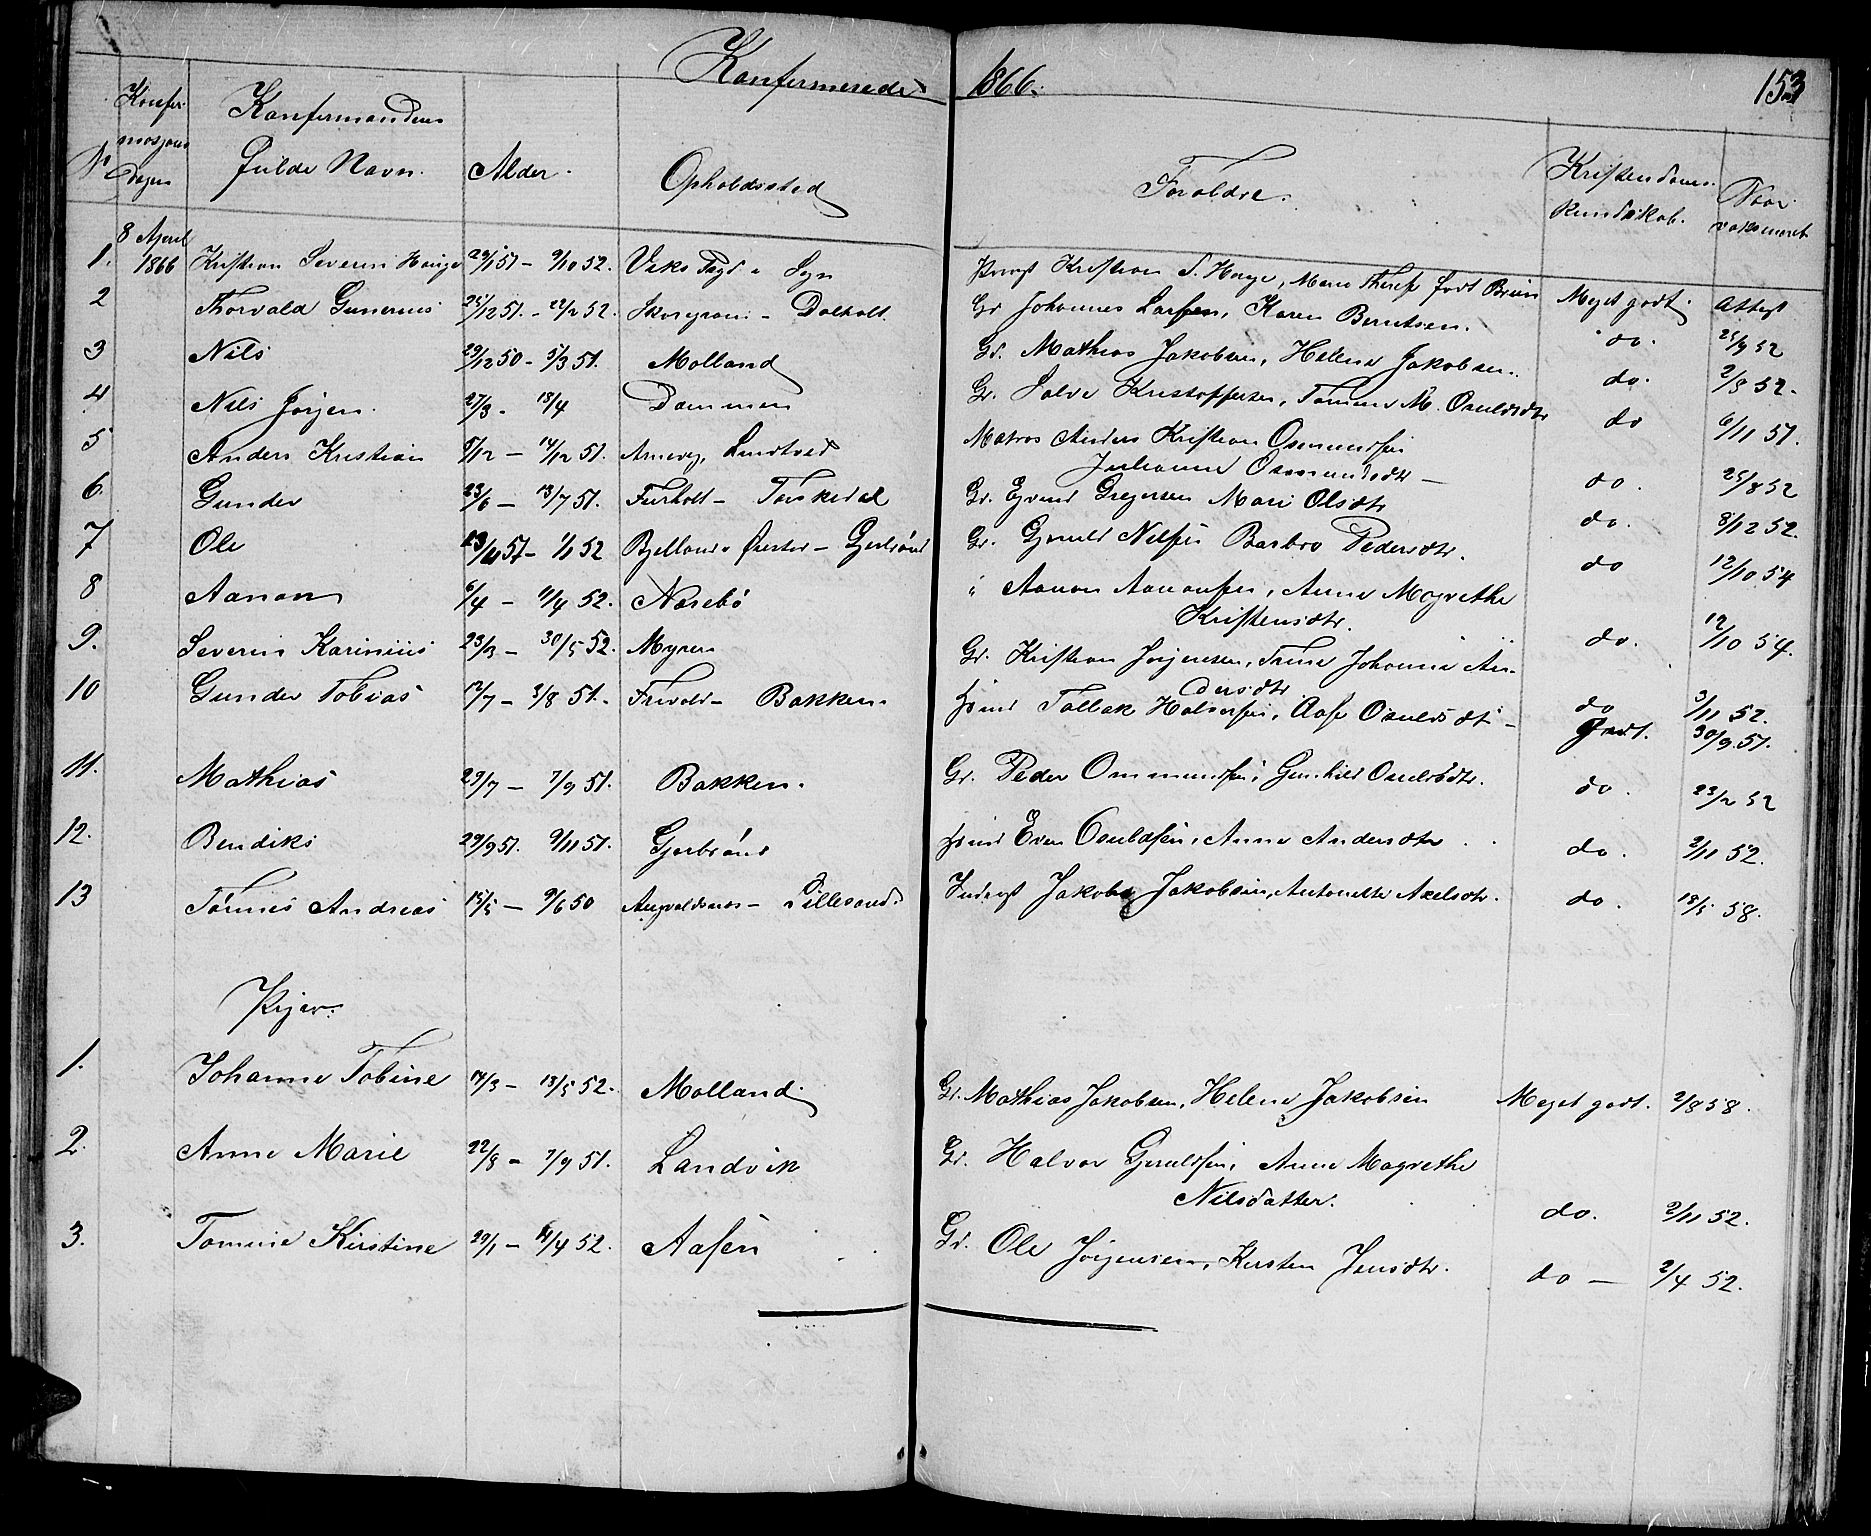 Konfermerede 1866. 153
No Konfermasjons Dagen Konfermandens fulde Navn. Alder. Opholdssted Foræltre. Kristendoms kundskab. Vaxineret
8 April 1866
1. Kristian Severin Hauge 29/1 51 - 9/10 52. Præst Kristian S. Hauge, født Brun Meget godt Attest
2 Thorvald Gunerius 25/12 51. - 22/2 52. Dalholt. Gr Johannes Larsen, Karen Berntsen. do. 25/9 52
3 Nils 29/12 50 - 5/3 51. Molland Gr. Mathias Jakobsen, Helene Jakobsen. do. 2/8 52.
4 Nils Jørgen. 27/3 - 18/4 Dammen Gr. Salve Kristoffersen, Tomine M. Osuldsdtr do 6/11 51.
5 Anders Kristian 8/12 - 14/12 51. Landtved Matros Anders Kristian Osmundsen
Julianne Osmundsdtr - do. 25/8 52
6. Gunder 23/6 - 13/7 51. Furholt - Toskedal Gr. Ejvind Gregersen Mari Olsdtr do. 8/12 52.
7 Ole 51 - 1/1 52 Gjerbrønd Gr. Gjeruld Nilsen Barbro Pedersdtr. do 12/10 54
8 Aanon 6/4 - 11/4 52. Narebø " Aanon Aanonsen, Anne Magrethe
Kristensdtr. do. 12/10 54.
9. Severin Karinius 23/3 - 30/5 52. Myren Gr. Kristian Jørgensen, Trine Johanne An-
dersdtr do 3/11 52.
10 Gunder Tobias 12/7 - 3/8 51. Frivold - Bakken. Tallak Halvorsen, Aase Osuldsdtr - Godt. 30/9 51.
11. Mathias 29/7 - 7/9 51. Bakken. Gr. Peder Ommundsen, Gunhild Osuldsdtr. do. 23/2 52
12. Bendiks 29/9 51. 9/11 51. Gjerbrønd Even Osuldsen, Anne Andersdtr do. 2/11 52.
13 Tønnes Andreas 15/5 - 9/6 50 Lillesand. Jakob Jakobsen, Antonette Axelsdtr. do. 18/5 58.
Piger.
1. Johanne Tobine 14/3 - 13/5 52. Molland. Gr. Mathias Jakobsen, Helene Jakobsen Meget godt. 2/8 58.
2. Anne Marie 22/8 - 7/9 51. Landvik Gr. Halvor Gjeruldsen, Anne Magrethe
Nilsdatter. do. 2/11 52.
3. Tomine Kirstine 29/1 - 52. Aasen Gr. Ole Jørgensen, Kirsten Jensdtr. do - 2/4 52.